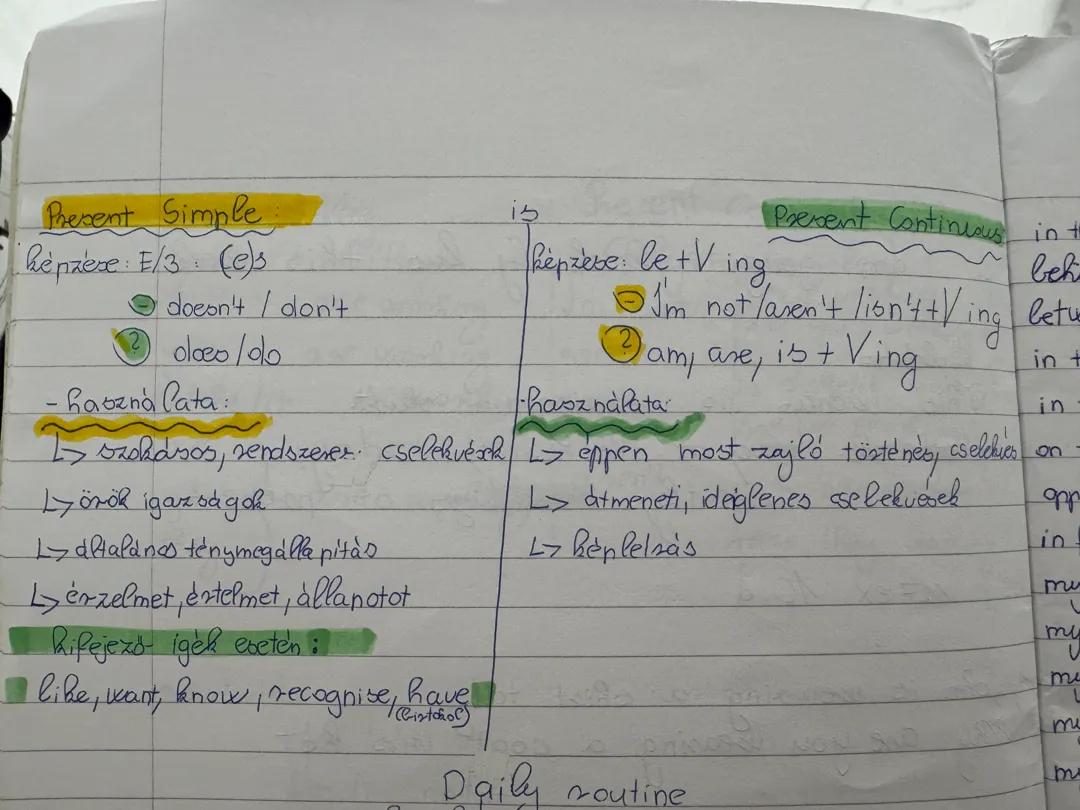 Present Simple:
képzése: E/3: (e)s
- doesn't / don't
? does/do
- használata:
↳ szokásos, rendszeres cselekvések
↳ örök igazságok
↳ általános ténymegállapítás
↳ érzelmet, értelmet, állapotot
kifejező igék esetén:
like, want, know, recognise, have
(birtokol)
is
Present Continuous
képzése: be + V ing
- I'm not /aren't /isn't + V ing
? am, are, is + V ing
- használata:
↳ éppen most zajló történés, cselekvés
↳ átmeneti, ideiglenes cselekvések
↳ képleírás
Daily routine
in
in
in
on
in